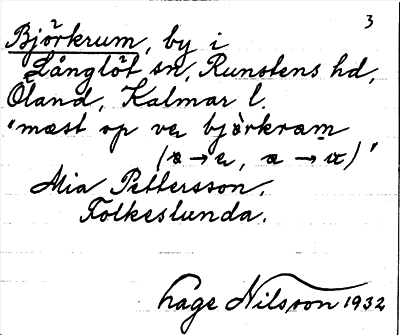 3
Björkrum, by i
Långlöt sn, Runstens hd,
Öland, Kalmar l.
"mæst op ve bjòrkram
( → , a → )"
Mia Pettersson,
Folkeslunda.
Hage Nilsson 1932